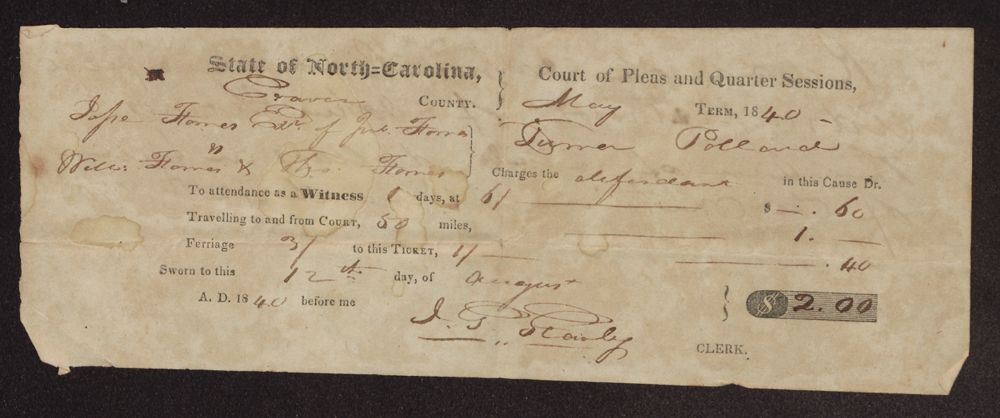 State of North=Carolina,
Craven COUNTY.
Court of Pleas and Quarter Sessions,
May TERM, 1840 -
Jesse Fornes of Fornes
vs
Willis Fornes & Thos. Fornes
Turner Polland
Charges the defendant in this Cause Dr.
To attendance as a Witness 1 days, at 6/ $ - . 60
Travelling to and from COURT, 50 miles, 1. -
Ferriage 3/ to this TICKET, 1/ . 40
Sworn to this 12th day, of August $ 2.00
A. D. 1840 before me
J. G. Stanly
CLERK.